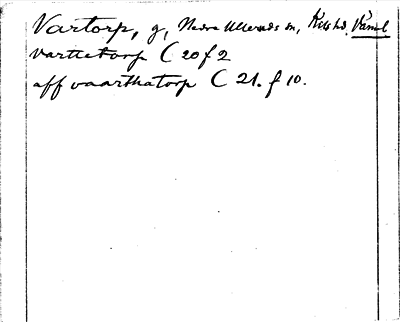 Vartorp, g, Nedra Ulleruds sn, Kils hd, Värml
varttetorp C 20 f 2
aff vaarthatorp C 21. f 10.